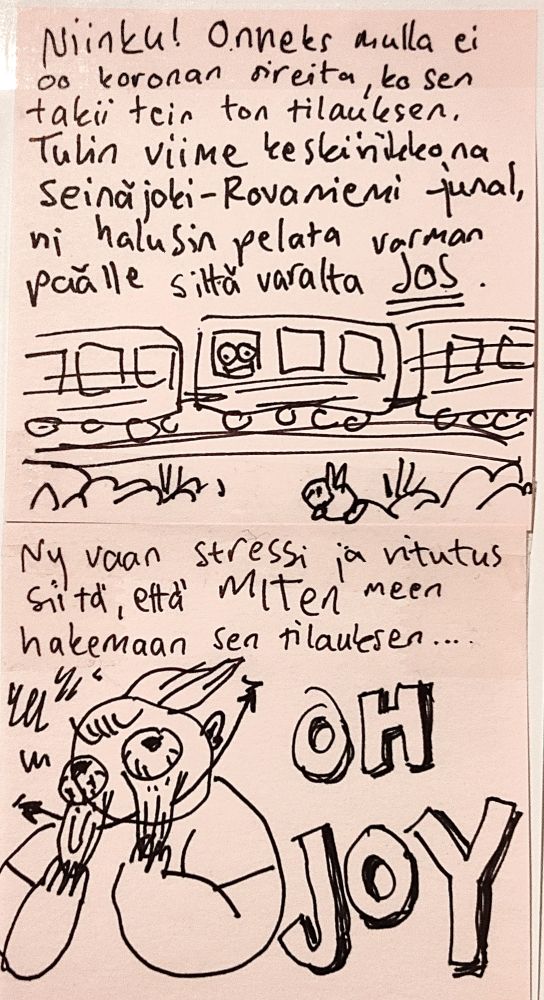 Niinku! Onneks mulla ei
oo koronan oireita, ko sen
takii tein ton tilauksen.
Tulin viime keskiviikkona
Seinäjoki-Rovaniemi -junal,
ni halusin pelata varman
päälle siltä varalta JOS.
Ny vaan stressi ja vitutus
siitä, että MITEN meen
hakemaan sen tilauksen....
OH
JOY